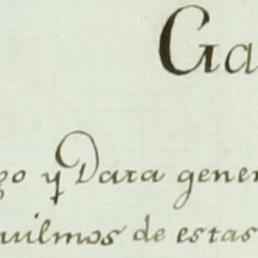 Ga
go y Data gener
quilmos de estas